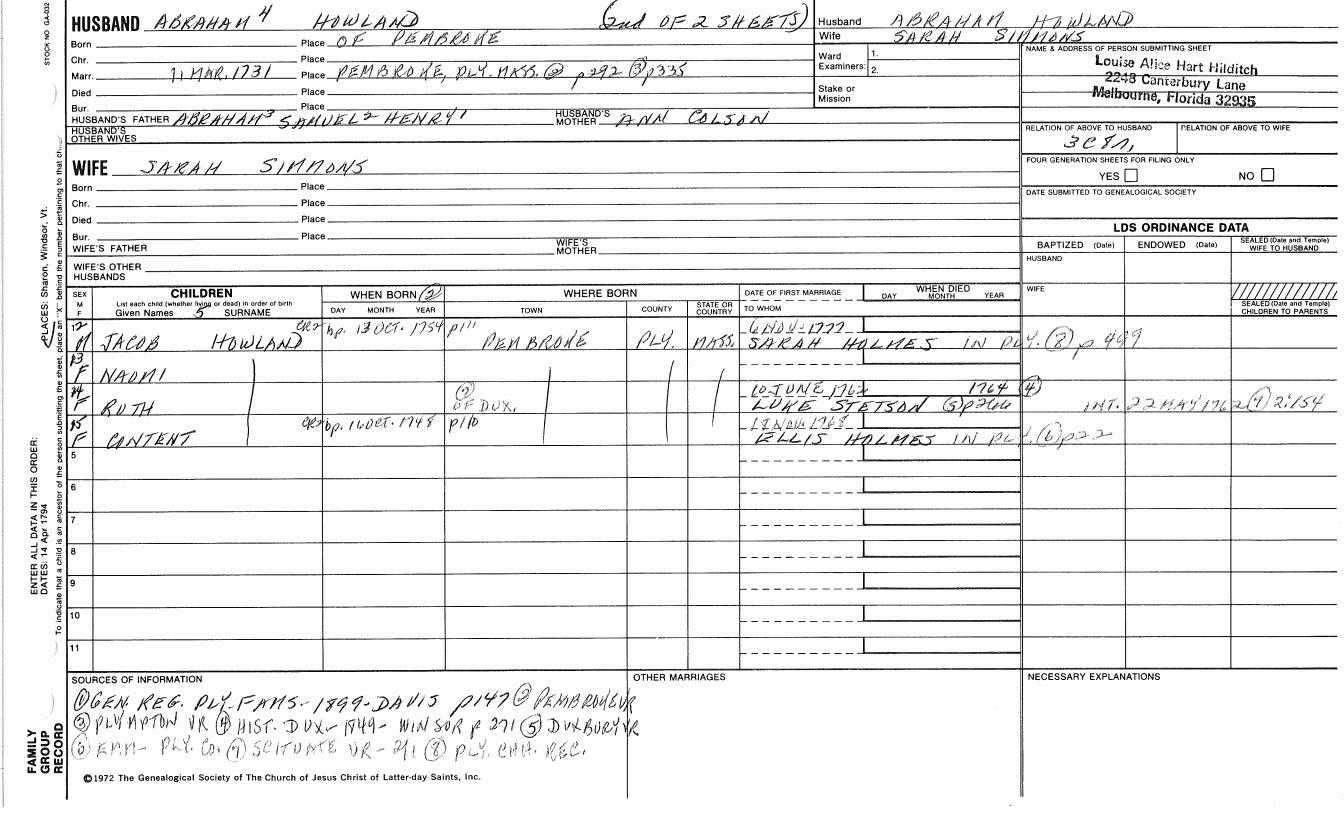 STOCK NO GA-032
HUSBAND ABRAHAM⁴ HOWLAND (2nd OF 2 SHEETS)
Born Place OF PEMBROKE
Chr. Place
Marr. 11 MAR. 1731 Place PEMBROKE, PLY. MASS. ② p292 ③ p335
Died Place
Bur. Place
HUSBAND'S FATHER ABRAHAM³ SAMUEL² HENRY¹ HUSBAND'S MOTHER ANN COLSON
HUSBAND'S OTHER WIVES
WIFE SARAH SIMMONS
Born Place
Chr. Place
Died Place
Bur. Place
WIFE'S FATHER WIFE'S MOTHER
WIFE'S OTHER HUSBANDS
Husband ABRAHAM HOWLAND
Wife SARAH SIMMONS
Ward Examiners: 1. 2.
Stake or Mission
NAME & ADDRESS OF PERSON SUBMITTING SHEET
Louise Alice Hart Hilditch
2248 Canterbury Lane
Melbourne, Florida 32935
RELATION OF ABOVE TO HUSBAND RELATION OF ABOVE TO WIFE
3C8R,
FOUR GENERATION SHEETS FOR FILING ONLY
YES NO
DATE SUBMITTED TO GENEALOGICAL SOCIETY
LDS ORDINANCE DATA
BAPTIZED (Date) ENDOWED (Date) SEALED (Date and Temple) WIFE TO HUSBAND
HUSBAND
WIFE
SEALED (Date and Temple) CHILDREN TO PARENTS
SEX M F CHILDREN List each child (whether living or dead) in order of birth Given Names 5 SURNAME
WHEN BORN ② DAY MONTH YEAR
WHERE BORN TOWN COUNTY STATE OR COUNTRY
DATE OF FIRST MARRIAGE TO WHOM
WHEN DIED DAY MONTH YEAR
12 CR2 bp. 13 OCT. 1754 p111 6 NOV. 1777
M JACOB HOWLAND PEMBROKE PLY. MASS. SARAH HOLMES IN PLY. ⑧ p 499
13
F NAOMI
14 ② 10 JUNE 1762 1764 ④
F RUTH OF DUX. LUKE STETSON ⑤ p266 INT. 22 MAY 1762 ⑦ 2:154
15 CR2 bp. 16 OCT. 1748 p110 18 NOV. 1768
F CONTENT ELLIS HOLMES IN PLY. ⑥ p22
5
6
7
8
9
10
11
SOURCES OF INFORMATION OTHER MARRIAGES NECESSARY EXPLANATIONS
① GEN. REG. PLY. FAMS - 1899 - DAVIS p147 ② PEMBROKE VR
③ PLYMPTON VR ④ HIST. DUX - 1849 - WINSOR p 271 ⑤ DUXBURY VR
⑥ EMM - PLY. CO. ⑦ SCITUATE VR - 2/1 ⑧ PLY. CHH. REC.
©1972 The Genealogical Society of The Church of Jesus Christ of Latter-day Saints, Inc.
FAMILY GROUP RECORD
ENTER ALL DATA IN THIS ORDER:
DATES: 14 Apr 1794
PLACES: Sharon, Windsor, Vt.
To indicate that a child is an ancestor of the person submitting the sheet, place an "X" behind the number pertaining to that